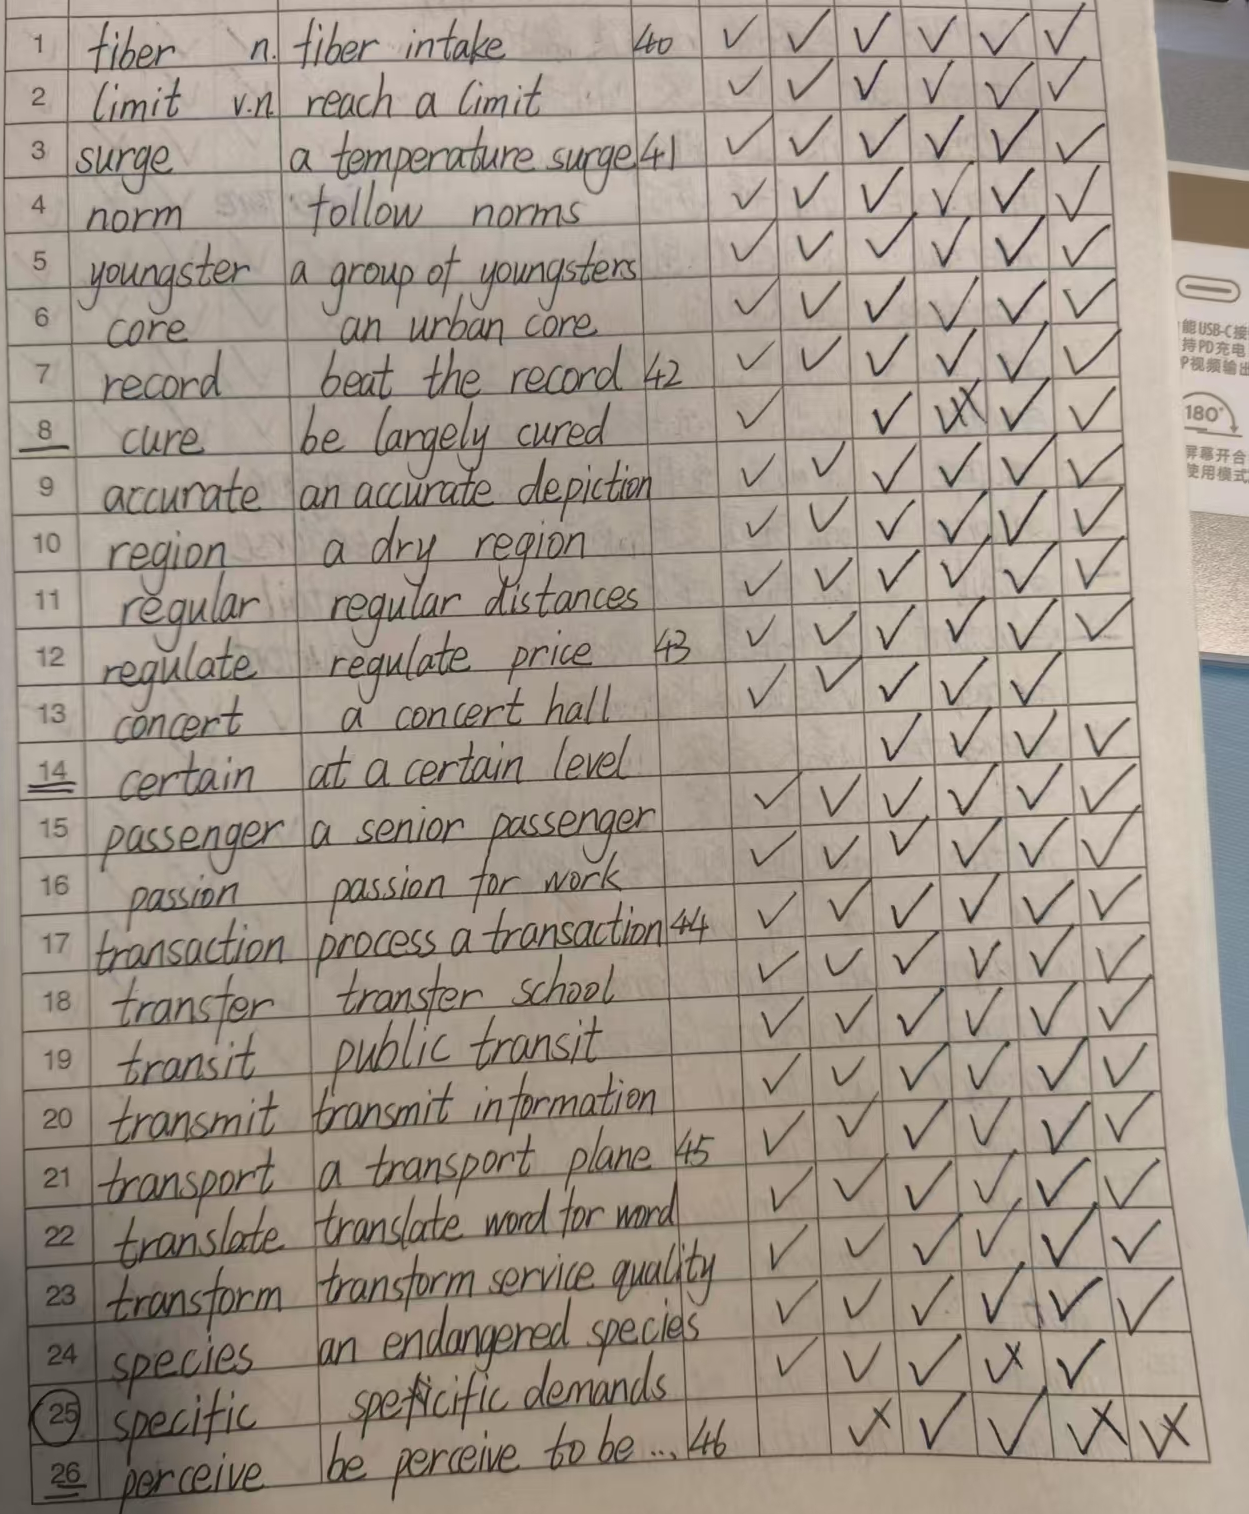 1 fiber n. fiber intake 40 ✓ ✓ ✓ ✓ ✓ ✓
2 limit v.n. reach a limit ✓ ✓ ✓ ✓ ✓ ✓
3 surge a temperature surge 41 ✓ ✓ ✓ ✓ ✓ ✓
4 norm follow norms ✓ ✓ ✓ ✓ ✓ ✓
5 youngster a group of youngsters ✓ ✓ ✓ ✓ ✓ ✓
6 core an urban core ✓ ✓ ✓ ✓ ✓ ✓
7 record beat the record 42 ✓ ✓ ✓ ✓ ✓ ✓
8 cure be largely cured ✓ ✓ ✓x ✓ ✓
9 accurate an accurate depiction ✓ ✓ ✓ ✓ ✓ ✓
10 region a dry region ✓ ✓ ✓ ✓ ✓ ✓
11 regular regular distances ✓ ✓ ✓ ✓ ✓ ✓
12 regulate regulate price 43 ✓ ✓ ✓ ✓ ✓ ✓
13 concert a concert hall ✓ ✓ ✓ ✓ ✓
14 certain at a certain level ✓ ✓ ✓ ✓
15 passenger a senior passenger ✓ ✓ ✓ ✓ ✓ ✓
16 passion passion for work ✓ ✓ ✓ ✓ ✓ ✓
17 transaction process a transaction 44 ✓ ✓ ✓ ✓ ✓ ✓
18 transfer transfer school ✓ ✓ ✓ ✓ ✓ ✓
19 transit public transit ✓ ✓ ✓ ✓ ✓ ✓
20 transmit transmit information ✓ ✓ ✓ ✓ ✓ ✓
21 transport a transport plane 45 ✓ ✓ ✓ ✓ ✓ ✓
22 translate translate word for word ✓ ✓ ✓ ✓ ✓ ✓
23 transform transform service quality ✓ ✓ ✓ ✓ ✓ ✓
24 species an endangered species ✓ ✓ ✓ ✓ ✓ ✓
25 specific speficific demands ✓ ✓ ✓ ✓x ✓
26 perceive be perceive to be... 46 ✓x ✓ ✓ ✓x ✓x
能USB-C接
持PD充电
P视频输出
180°
屏幕开合
使用模式